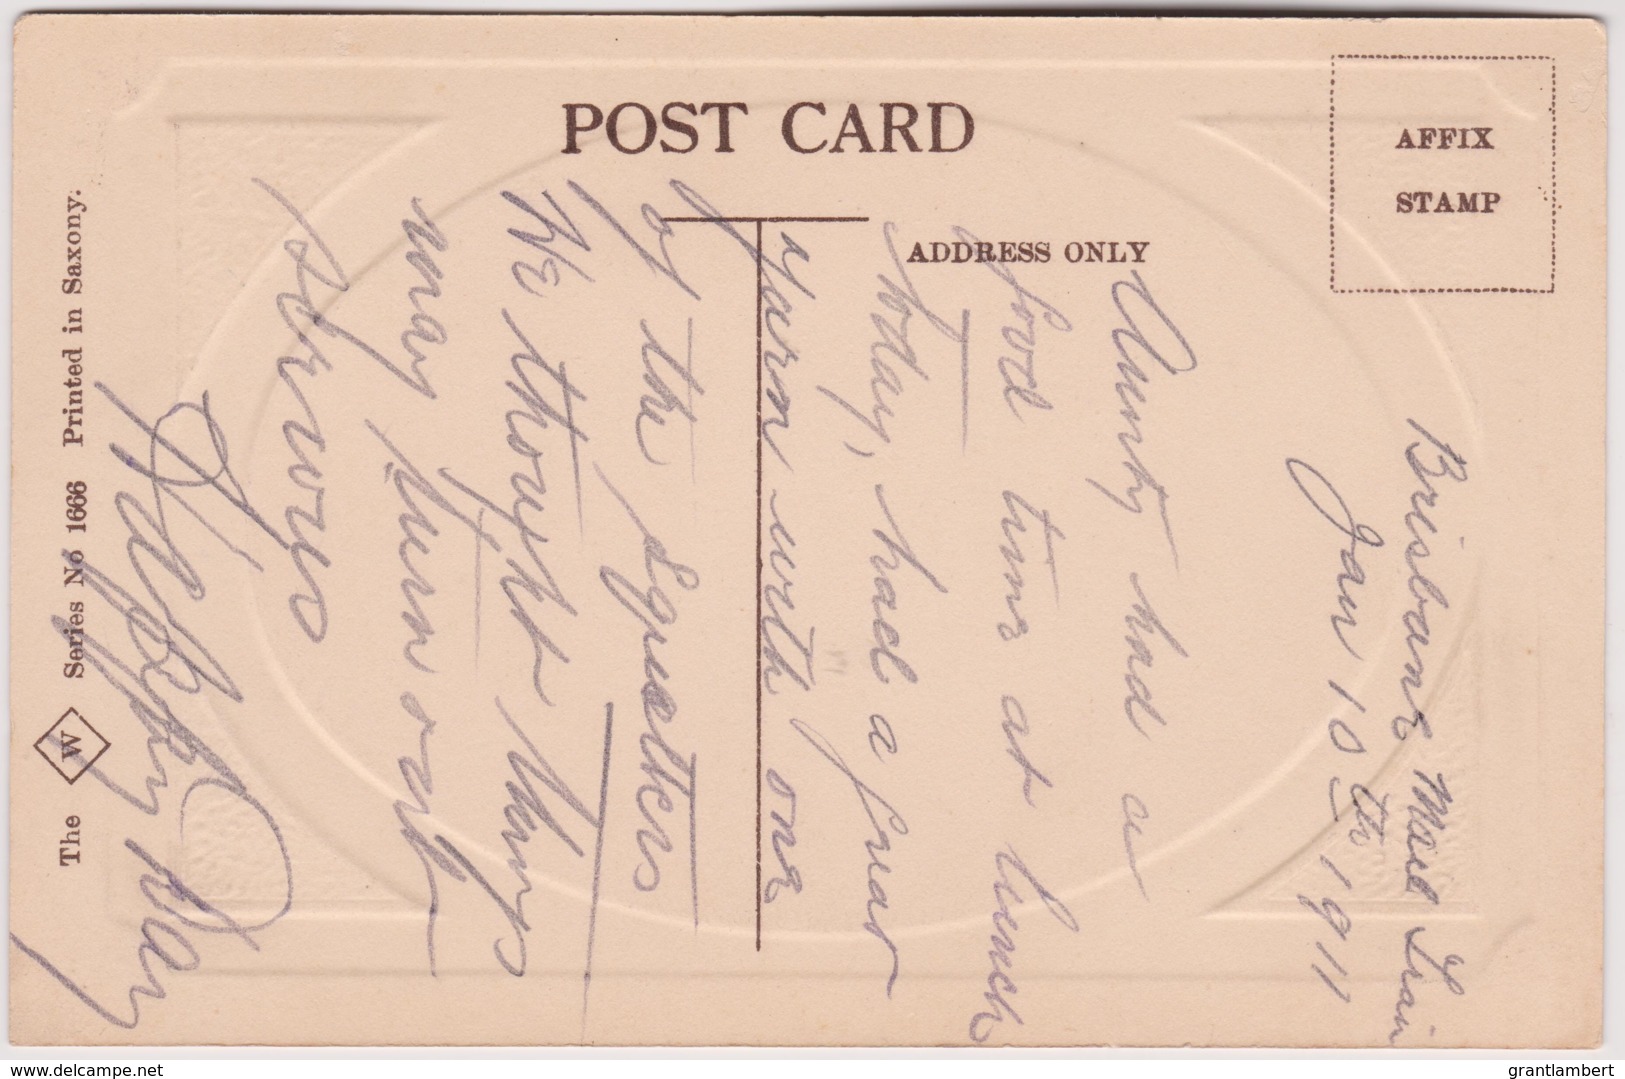 POST CARD
AFFIX
STAMP
ADDRESS ONLY
The W Series No 1666 Printed in Saxony.
Brisbane Mail Train
Jan 10th 1911
Aunty had a
good time at lunch
today, had a
yarn with one
of the Squatters
He thought things
may turn out
delcampe.net
grantlambert